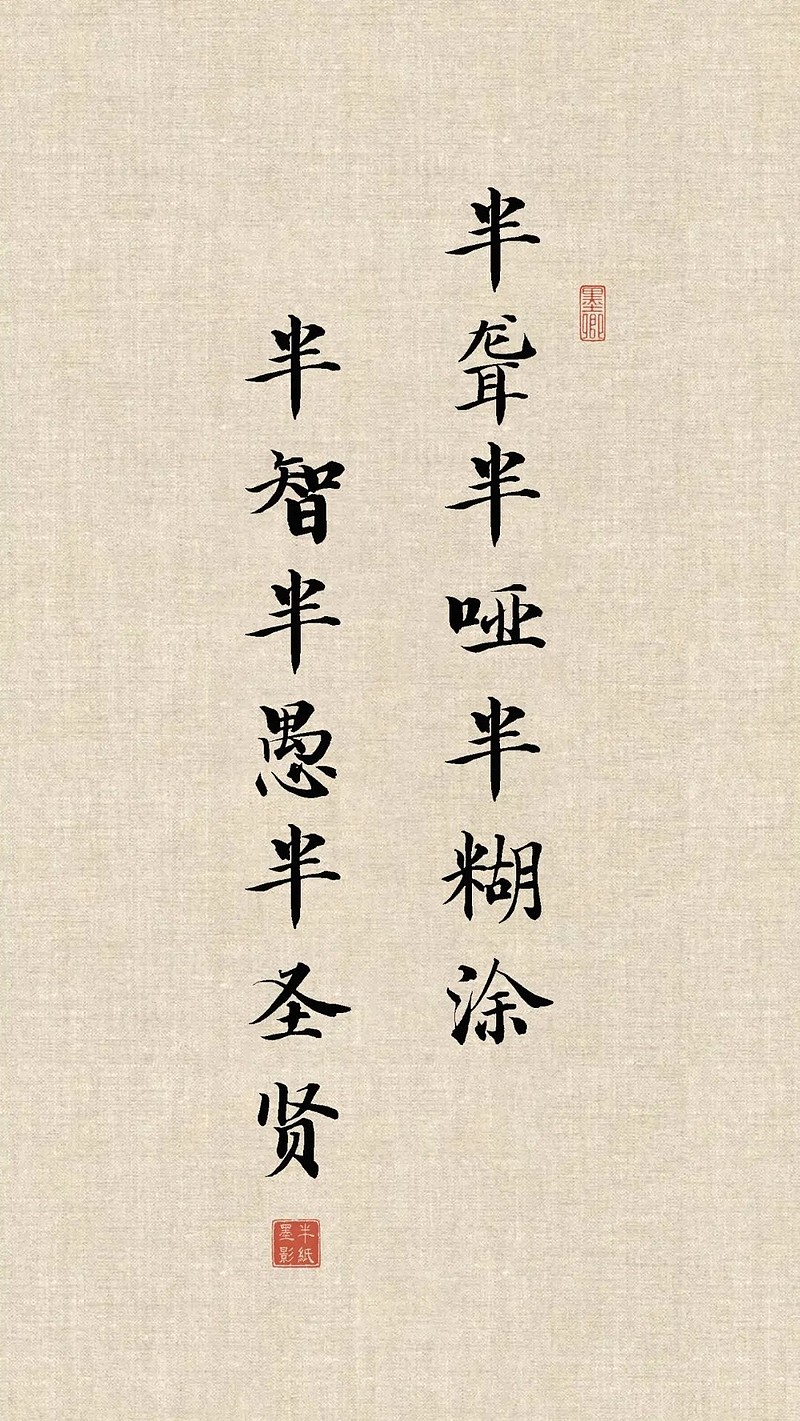 墨卿
半聋半哑半糊涂
半智半愚半圣贤
半紙
墨影